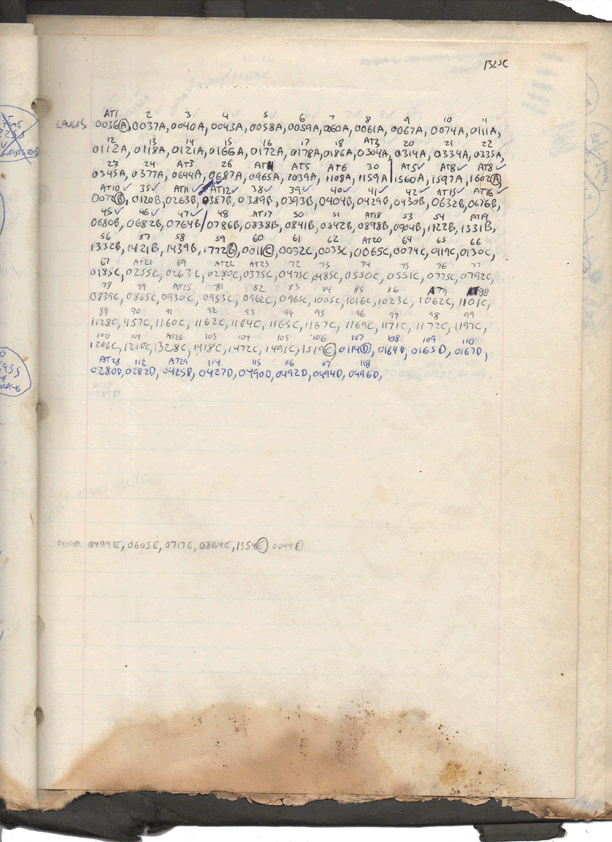 1325C
AT1 2 3 4 5 6 7 8 9 10 11
0036A, 0037A, 0040A, 0043A, 0058A, 0059A, 0060A, 0061A, 0067A, 0074A, 0111A,
12 13 14 15 16 17 18 AT2 20 21 22
0112A, 0118A, 0121A, 0166A, 0172A, 0178A, 0186A, 0304A, 0314A, 0334A, 0335A,
23 24 AT3 26 AT4 AT5 AT6 30 AT7 AT8
0345A, 0377A, 0644A, 0687A, 0965A, 1039A, 1108A, 1159A, 1560A, 1597A, 1602A,
AT10 35 AT11 AT12 38 39 40 41 42 AT15 AT16
0078B, 0120B, 0263B, 0387B, 0389B, 0393B, 0404B, 0429B, 0430B, 0632B, 0676B,
45 46 47 48 AT17 50 51 AT18 53 54 AT19
0680B, 0682B, 0764B, 0786B, 0838B, 0841B, 0842B, 0898B, 0904B, 1122B, 1331B,
56 57 58 59 60 61 62 AT20 64 65 66
1332B, 1421B, 1439B, 1772B, 0011C, 0032C, 0033C, 0065C, 0074C, 0119C, 0130C,
67 AT21 69 AT22 AT23 72 73 74 75 76 77
0185C, 0255C, 0263C, 0280C, 0375C, 0475C, 0485C, 0500C, 0551C, 0775C, 0792C,
78 79 AT25 81 82 83 84 85 86
0839C, 0865C, 0930C, 0953C, 0962C, 0965C, 1005C, 1016C, 1023C, 1062C, 1101C,
89 90 91 92 93 94 95 96 97 98 99
1128C, 1157C, 1160C, 1162C, 1164C, 1165C, 1167C, 1169C, 1171C, 1172C, 1197C,
100 101 AT26 103 104 105 106 107 108 109 110
1206C, 1210C, 1328C, 1418C, 1472C, 1491C, 1519C, 0114D, 0164D, 0165D, 0167D,
AT28 112 AT29 114 115 116 117 118
0280D, 0282D, 0425D, 0427D, 0490D, 0492D, 0494D, 0496D,
0499E, 0605E, 0717E, 0864E, 1354E